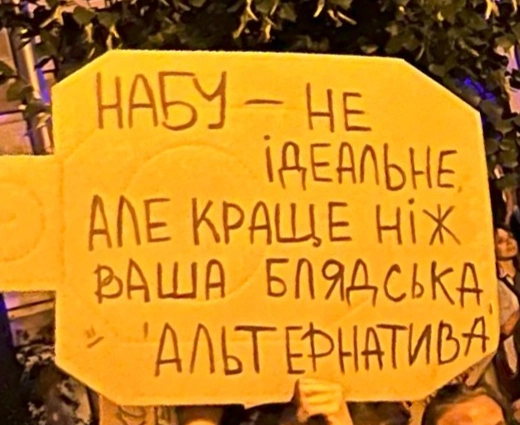 НАБУ – НЕ
ІДЕАЛЬНЕ,
АЛЕ КРАЩЕ НІЖ
ВАША БЛЯДСЬКА
'АЛЬТЕРНАТИВА'